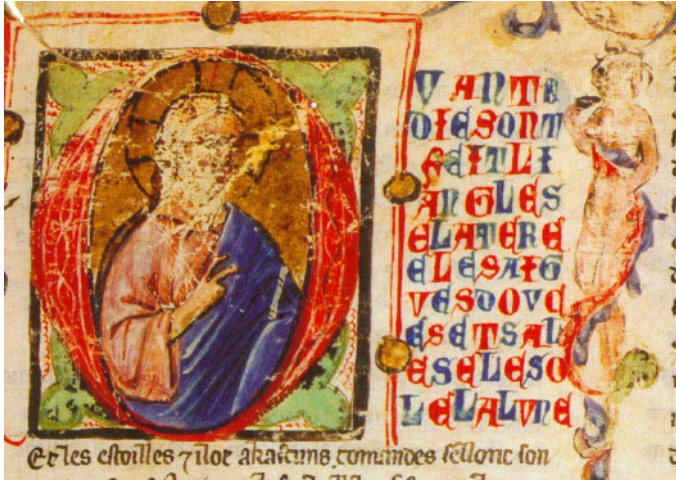 VANTE
DIESONT
FEITLI
ANGLES
ELATERE
ELESAIG
VESDOVC
ESETSAL
ESELESO
LELALVNE
Et les estoilles ⁊ ilor akascuns comandes sellonc son